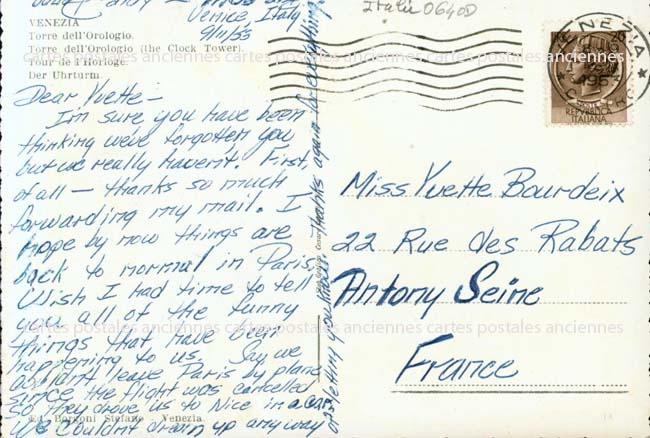 Venice, Italy
9/11/53
Italie 06400
VENEZIA
Torre dell'Orologio.
Torre dell'Orologio (the Clock Tower).
Tour de l'Horloge.
Der Uhrturm.
Dear Yvette -
I'm sure you have been
thinking we've forgotten you
but we really haven't. First,
of all - thanks so much
forwarding my mail. I
hope by now things are
back to normal in Paris.
Wish I had time to tell
you all of the funny
things that have been
happening to us. Say we
couldn't leave Paris by plane
since the flight was cancelled
so they drove us to Nice in a car
We couldn't
up anyway
thanks again for everything
Ed. Borgoni Stefano - Venezia
VENEZIA
REPUBBLICA
ITALIANA
Miss Yvette Bourdeix
22 Rue des Rabats
Antony Seine
France
cartes postales anciennes cartes postales anciennes
cartes postales anciennes cartes postales anciennes